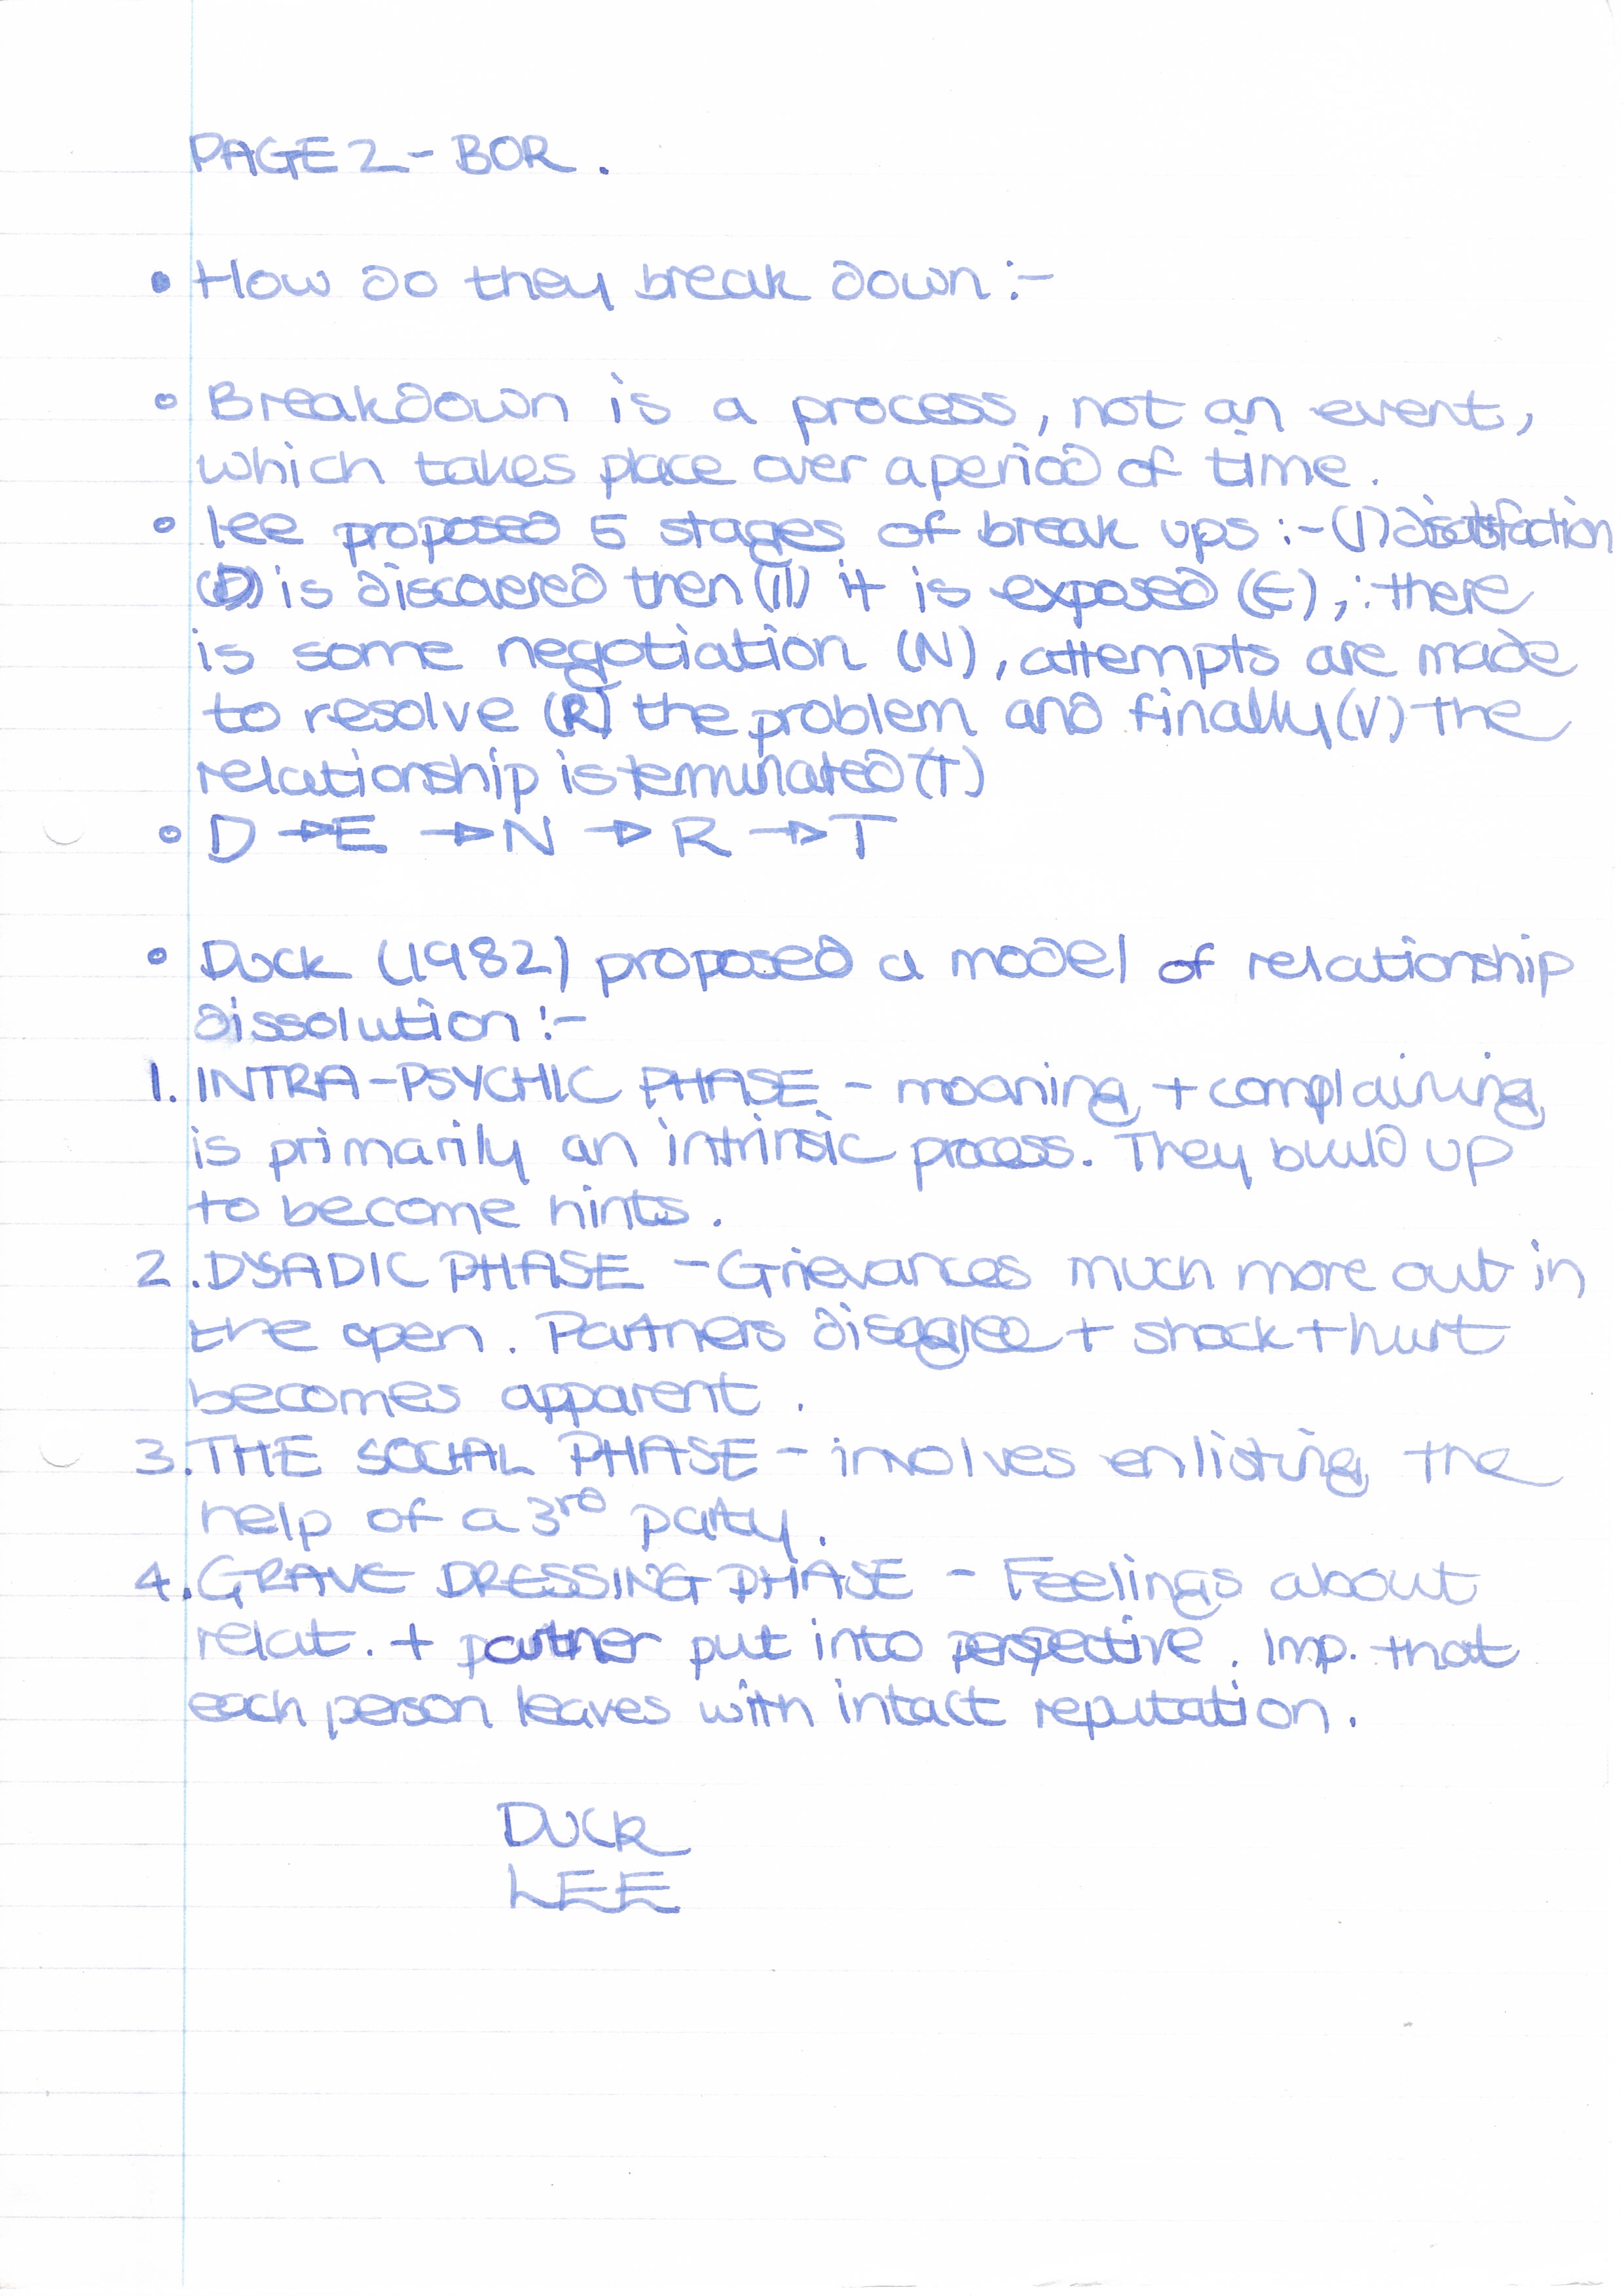 PAGE 2 - BOR.
• How do they break down :-
• Breakdown is a process, not an event,
which takes place over a period of time.
• Lee proposed 5 stages of break ups :- (I) disatisfaction
(D) is discovered then (II) it is exposed (E), ; there
is some negotiation (N), attempts are made
to resolve (R) the problem and finally (V) the
relationship is terminated (T)
• D → E → N → R → T
• Duck (1982) proposed a model of relationship
dissolution :-
1. INTRA-PSYCHIC PHASE - moaning + complaining
is primarily an intrinsic process. They build up
to become hints.
2. DYADIC PHASE - Grievances much more out in
the open. Partners disagree + shock + hurt
becomes apparent.
3. THE SOCIAL PHASE - involves enlisting the
help of a 3rd party.
4. GRAVE DRESSING PHASE - Feelings about
relat. + partner put into perspective. Imp. that
each person leaves with intact reputation.
DUCK
LEE